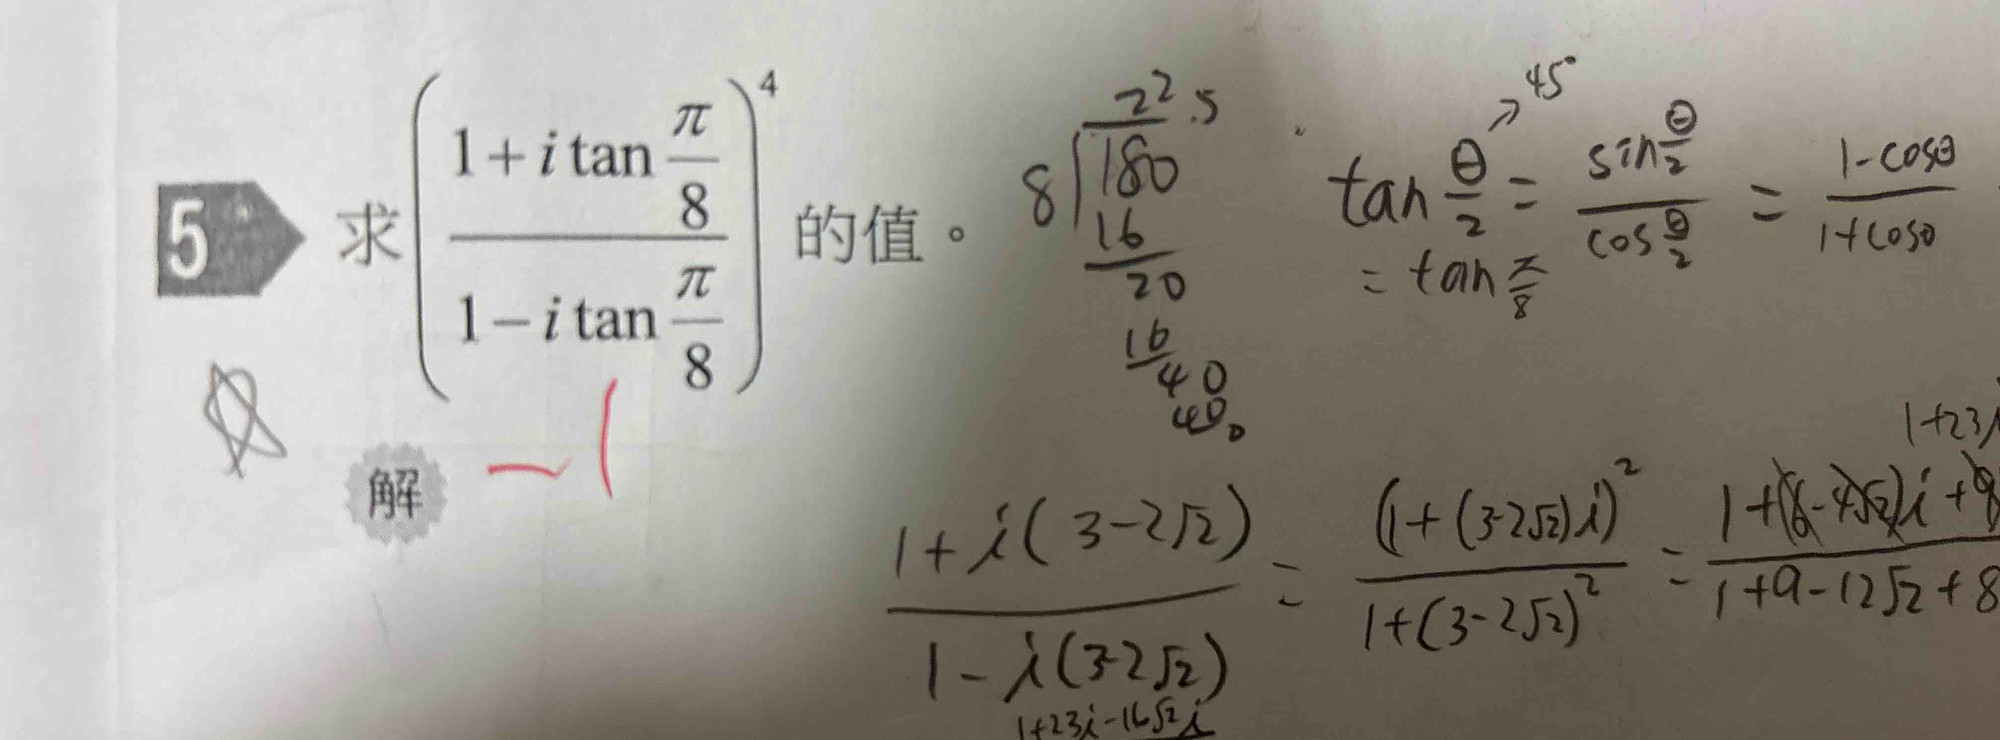 5 求 ( (1 + i tan π/8) / (1 − i tan π/8) )^4 的值。
解 −1
22.5
8 ) 180
16
20
16
40
40
0
45°
tan θ/2 = sin θ/2 / cos θ/2 = 1-cosθ / 1+cosθ
= tan π/8
1+23i
(1 + i(3-2√2)) / (1 - i(3-2√2)) = (1+(3-2√2)i)^2 / (1+(3-2√2)^2) = (1+(6-4√2)i+9) / (1+9-12√2+8)
1+23i-16√2i